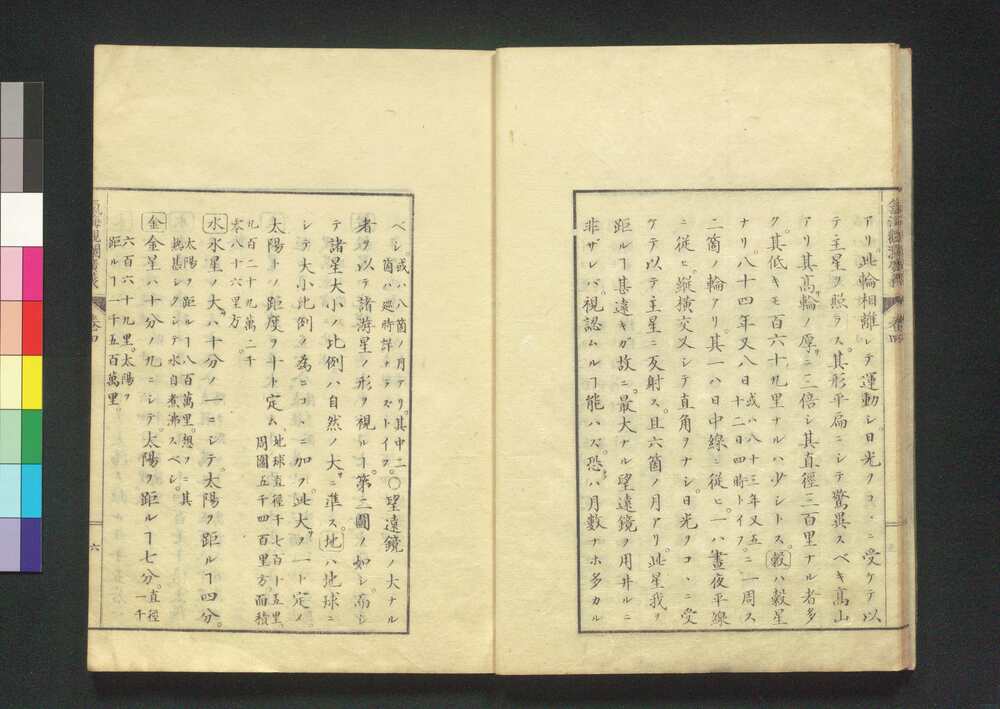 アリ此輪相離レテ運動シ。日光ヲコヽニ受ケテ以
テ主星ヲ照ラス。其形平扁ニシテ驚異スベキ高山
アリ其高輪ノ厚ニ三倍シ其直徑三百里ナル者多
ク。其低キモ百六十九里ナルハ少シトス。㲄ハ㲄星
ナリ。八十四年又八日或ハ八十三年又五十二日四時トイフ。ニ一周ス
二箇ノ輪アリ。其一ハ日中線ニ從ヒ。一ハ晝夜平線
ニ從ヒ。縱橫交叉シテ直角ヲナシ。日光ヲコヽニ受
ケテ以テ主星ニ反射ス。且六箇ノ月アリ。此星我ヲ
距ルヿ甚遠キガ故ニ。最大ナル望遠鏡ヲ用井ルニ
非ザレバ。視認ムルヿ能ハズ。恐ハ月數ナホ多カル
ベシ。或ハ八箇ノ月アリ。其中二箇ハ廻時詳ナラズトイフ。〇望遠鏡ノ大ナル
者ヲ以テ諸游星ノ形ヲ視ルヿ。第二圖ノ如シ。而シ
テ諸星大小ノ比例ハ自然ノ大ニ準ス。地ハ地球ニ
シテ大小比例ノ爲ニコヽニ加フ此大ヲ一ト定メ
太陽トノ距度ヲ十ト定ム。地球直徑千七百十五里。周圍五千四百里方。面積
九百二十九萬二千零八十六里方。
水水星ノ大ハ十分ノ一ニシテ。太陽ヲ距ルヿ四分。
太陽ヲ距ルヿ八百萬里。想フニ其熱甚シクシテ水自煮沸スベシ。
金金星ハ十分ノ九ニシテ。太陽ヲ距ルヿ七分。直徑一千
六百六十九里。太陽ヲ距ルヿ一千五百萬里。
卷四
六